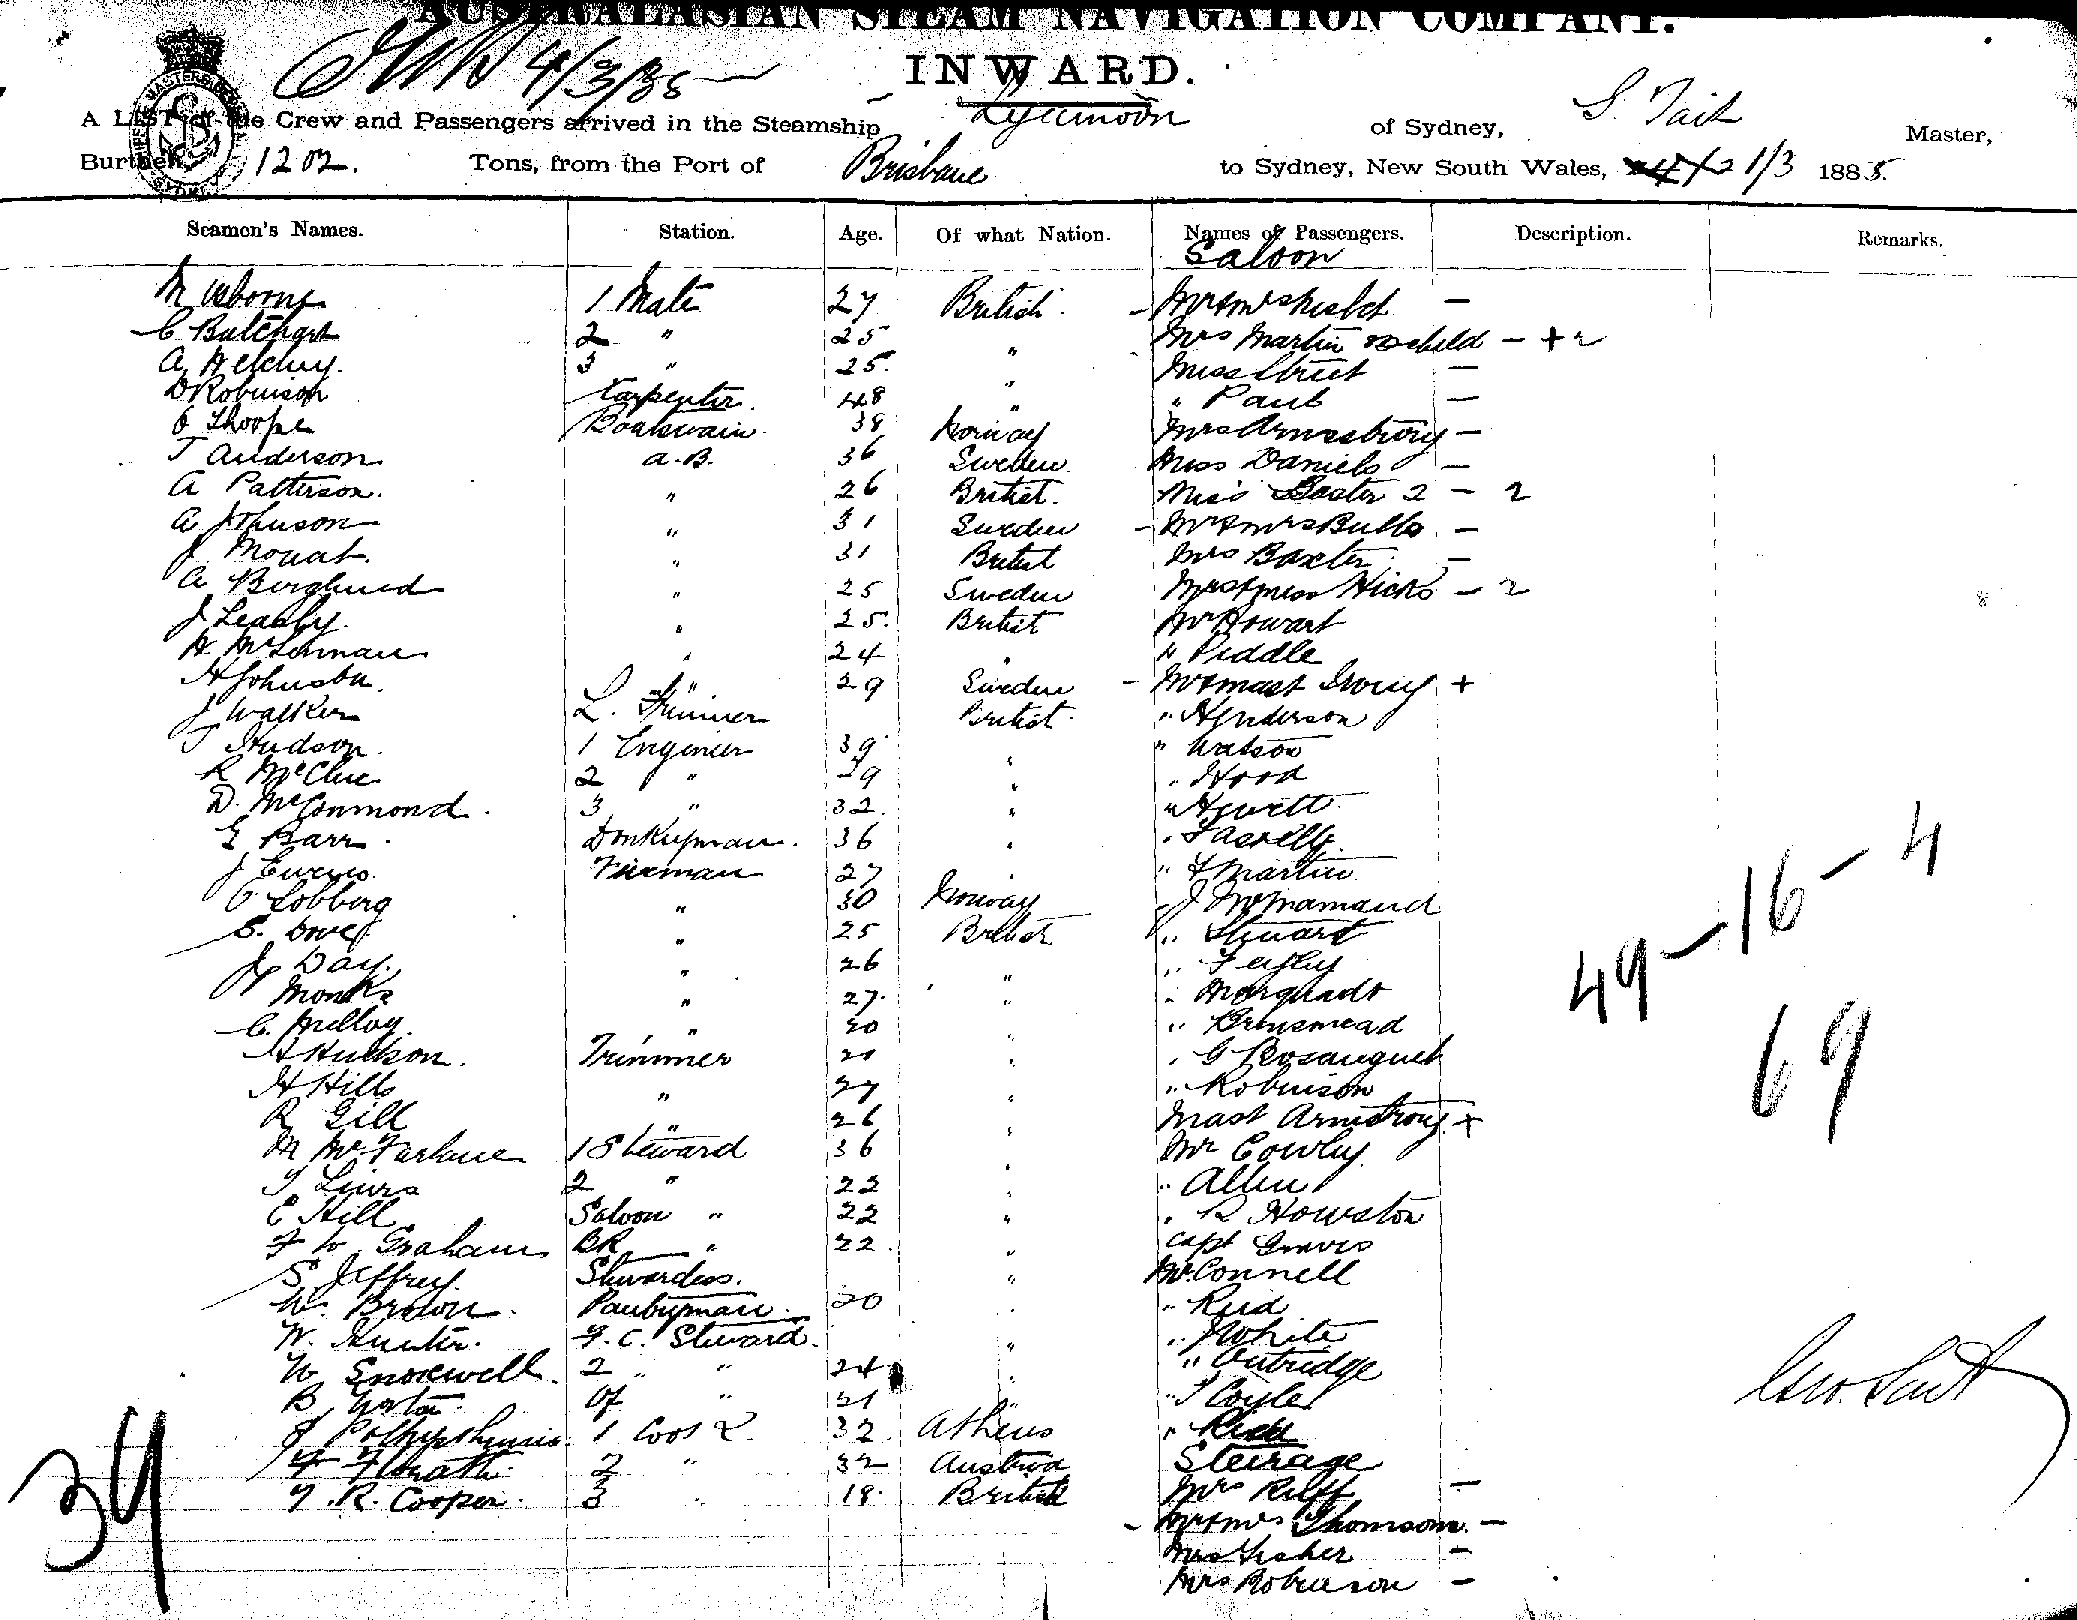 AUSTRALASIAN STEAM NAVIGATION COMPANY.
INWARD.
4/3/85
A LIST of the Crew and Passengers arrived in the Steamship Lyeemoon of Sydney, S. Tait Master,
Burthen 1202. Tons, from the Port of Brisbane to Sydney, New South Wales, 1/3 1885.
Seamen's Names. Station. Age. Of what Nation. Names of Passengers. Description. Remarks.
Saloon
M Osborne 1 Mate 27 British - Mr & Mrs Nisbet -
C Butchart 2 " 25 " Mrs Martin & child - + 2
A 3 " 25. " Miss Street -
D Robinson Carpenter. 48 " " Paul -
O Thorpe Boatswain 38 Norway Mrs -
T Anderson a.B. 36 Sweden Miss Daniels -
A Patterson. " 26 British. Miss 2 - 2
A Johnson " 31 Sweden - Mr & Mrs Butts -
J. Mouat. " 31 British Mrs Baxter -
A Berglund " 25 Sweden Mrs & Miss Hicks - 2
J Leashy. " 25. British Mr Howart
H. McLennan " 24 " " Piddle
H Johnson. " 29 Sweden - Mr & Mast Irving +
J Walker L. Trimmer British. " Henderson
T Hudson. 1 Engineer 39 " " Watson
R McClue 2 " 29 " " Hood
D. McConmond. 3 " 32. " " Hewett
G Barr. Donkeyman. 36 "
J Ewens. Fireman 27 " " F Martin
O Lobberg " 30 Norway " J McNamara
S. Dove " 25 British " Stuart
J Day. " 26 "
Monks " 27. " " Marquadt
C. Mulloy. " 30 " " Brinsmead
H Hudson. Trimmer 21 " " G Bosanquet
H Hills " 27 " " Robinson
R Gill " 26 " Mast Armstrong +
M McFarlane 1 Steward 36 " Mr Cowley.
2 " 22 " " Allen
C Hill Saloon " 22 " " R Howston
F W Graham BR " 22. " Capt Graves
S Jeffrey. Stewardess. " Mr Connell
W. Brown. Pantryman. 20 " " Reid
W. Hunter. F. C. Steward. " " J White
W Snoxwell. 2 " " 24 " " Outridge
B Gorton Of " 21 " " T Coyle
J 1 Cook 32. Athens "
F 2 " 32 Austria Steerage
T. R. Cooper. 3 " 18. British Mrs Relff -
- Mr & Mrs Thomson. -
Mrs Fisher -
Mrs Robinson -
49 - 16 - 4
69
Geo. Tait
34